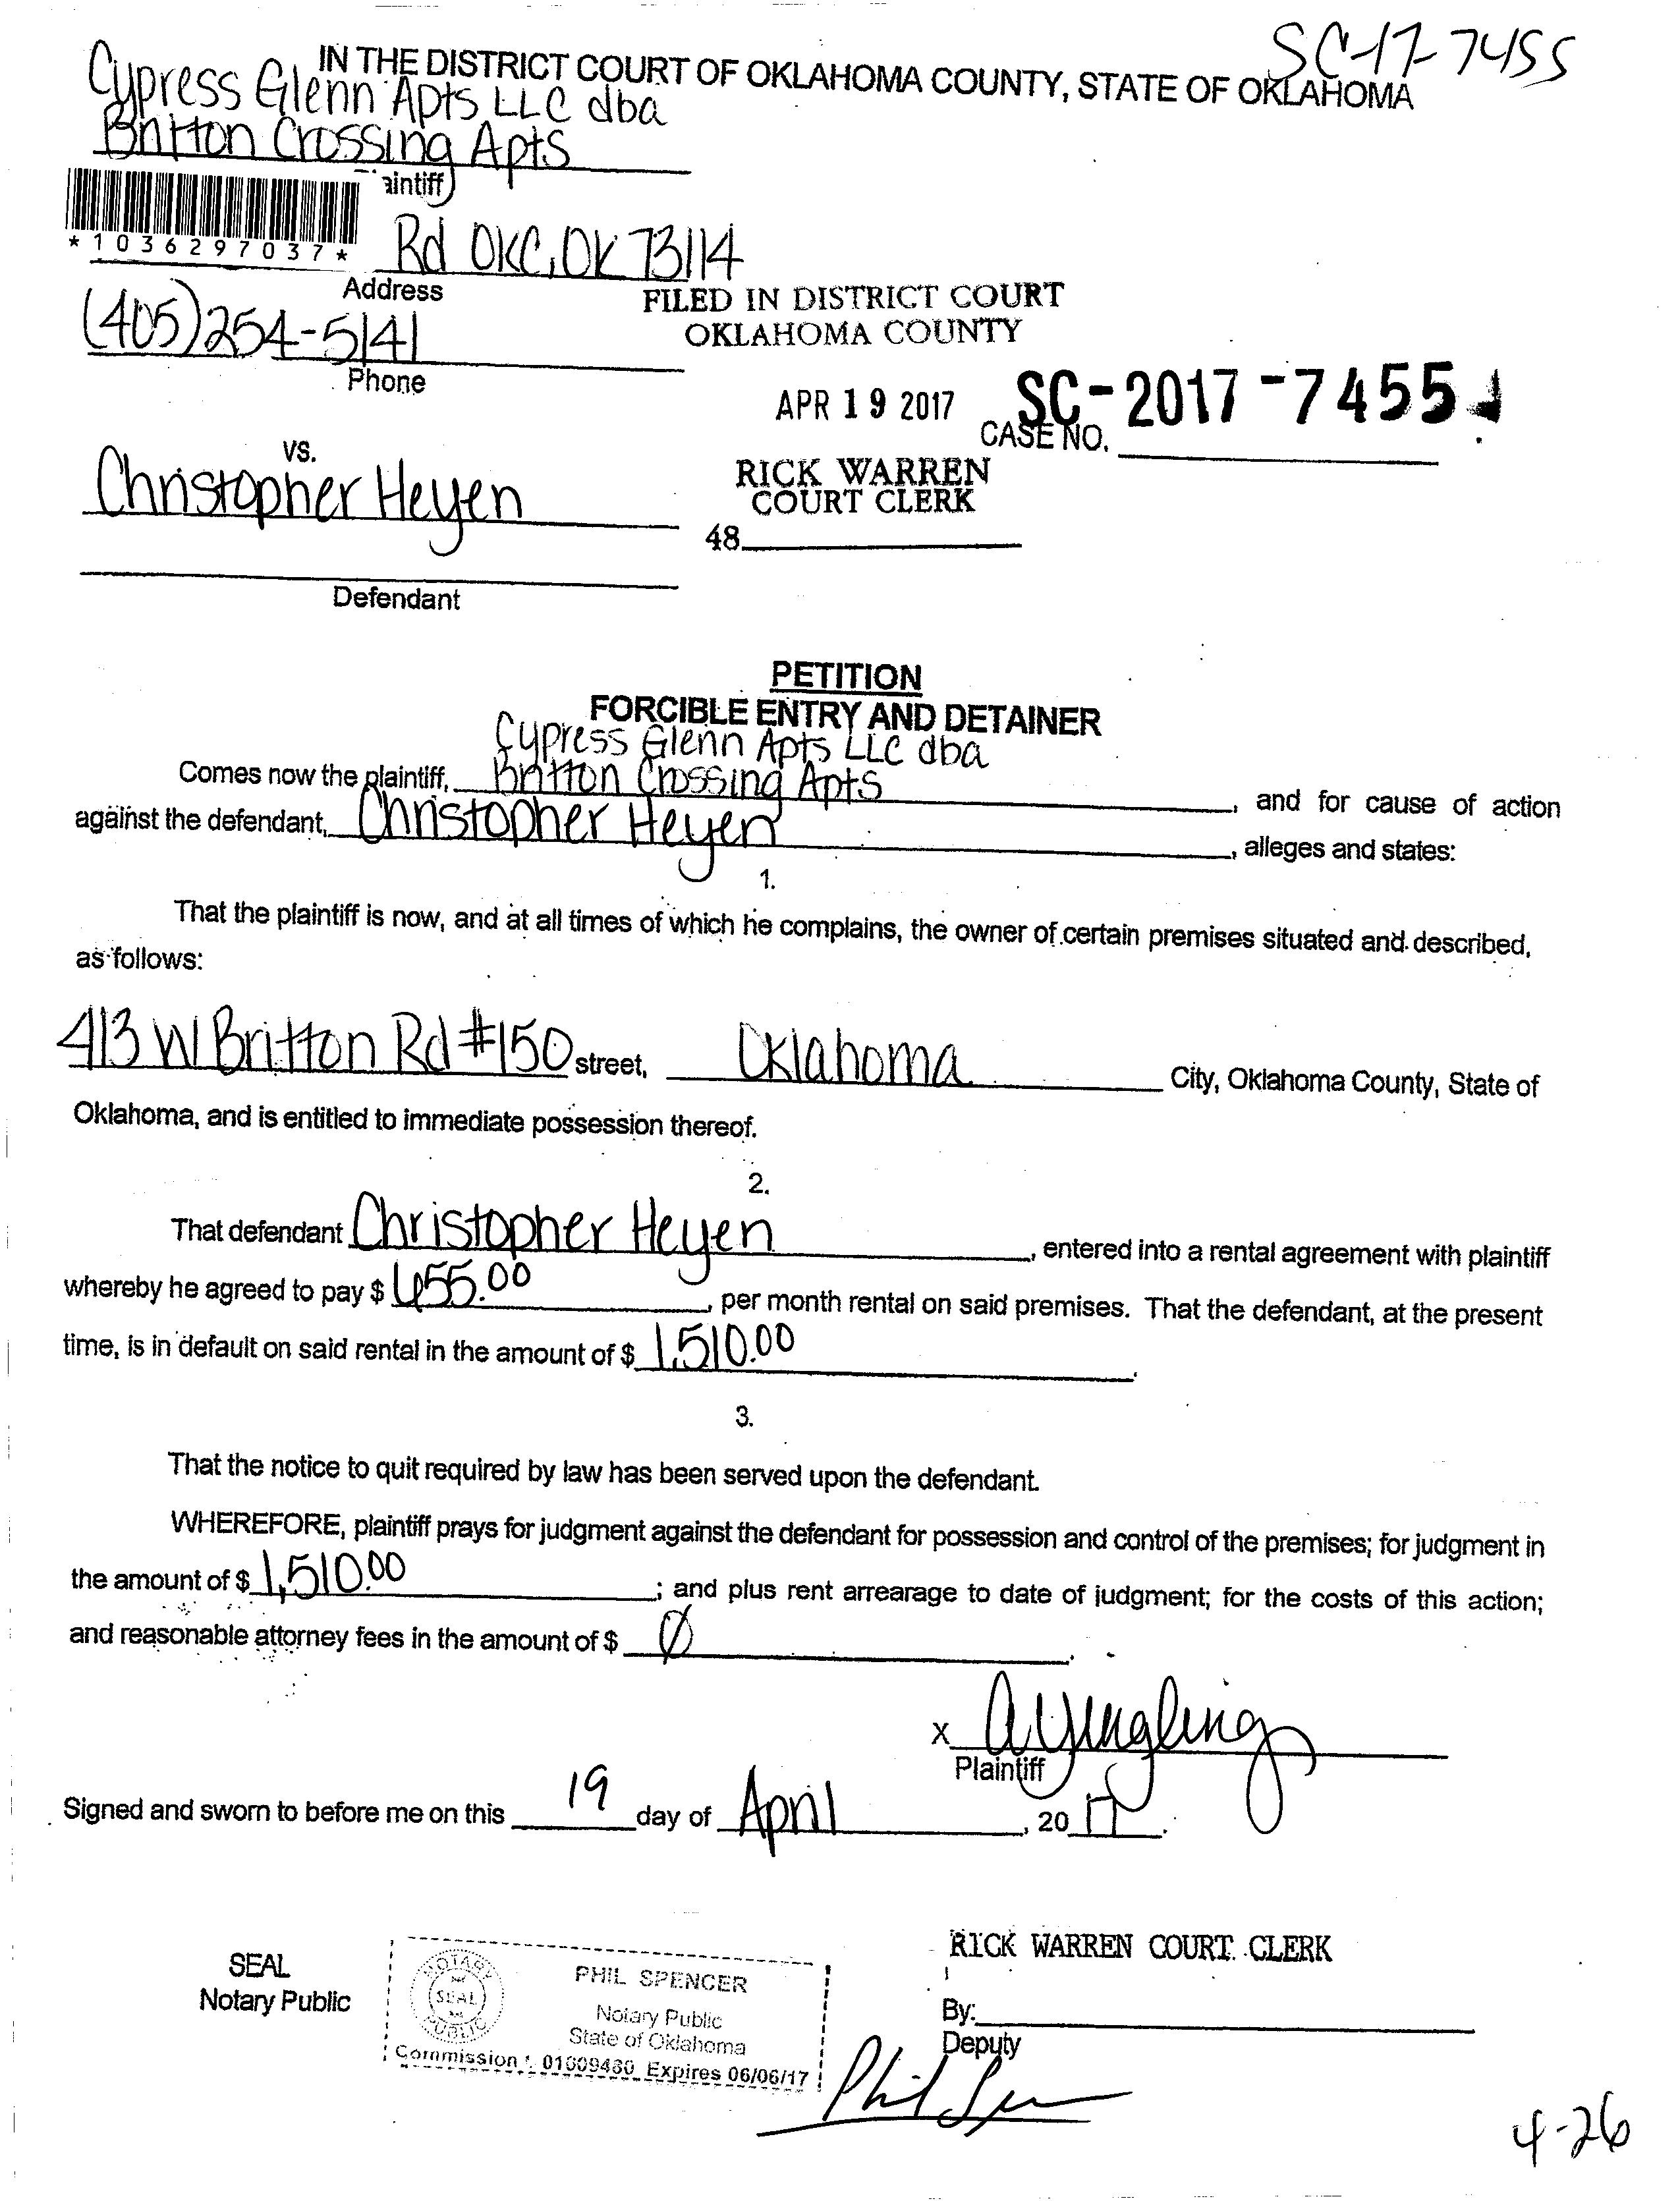 SC-17-7455
IN THE DISTRICT COURT OF OKLAHOMA COUNTY, STATE OF OKLAHOMA
Cypress Glenn Apts LLC dba
Britton Crossing Apts
aintiff
*1036297037*
Rd OKC, OK 73114
Address
FILED IN DISTRICT COURT
OKLAHOMA COUNTY
(405)254-5141
Phone
APR 19 2017
SC-2017-7455
CASE NO.
VS.
RICK WARREN
COURT CLERK
Christopher Heyen
48
Defendant
PETITION
FORCIBLE ENTRY AND DETAINER
Cypress Glenn Apts LLC dba
Comes now the plaintiff, Britton Crossing Apts, and for cause of action
against the defendant, Christopher Heyen, alleges and states:
1.
That the plaintiff is now, and at all times of which he complains, the owner of certain premises situated and described,
as follows:
413 W Britton Rd #150 street, Oklahoma City, Oklahoma County, State of
Oklahoma, and is entitled to immediate possession thereof.
2.
That defendant Christopher Heyen, entered into a rental agreement with plaintiff
whereby he agreed to pay $ 655.00, per month rental on said premises. That the defendant, at the present
time, is in default on said rental in the amount of $ 1,510.00.
3.
That the notice to quit required by law has been served upon the defendant.
WHEREFORE, plaintiff prays for judgment against the defendant for possession and control of the premises; for judgment in
the amount of $ 1,510.00; and plus rent arrearage to date of judgment; for the costs of this action;
and reasonable attorney fees in the amount of $ Ø.
X AYingling
Plaintiff
Signed and sworn to before me on this 19 day of April, 2017.
RICK WARREN COURT CLERK
SEAL
Notary Public
NOTARY
SEAL
PUBLIC
PHIL SPENCER
Notary Public
State of Oklahoma
Commission # 01009480 Expires 06/06/17
By:
Deputy
Phil Spencer
4-26